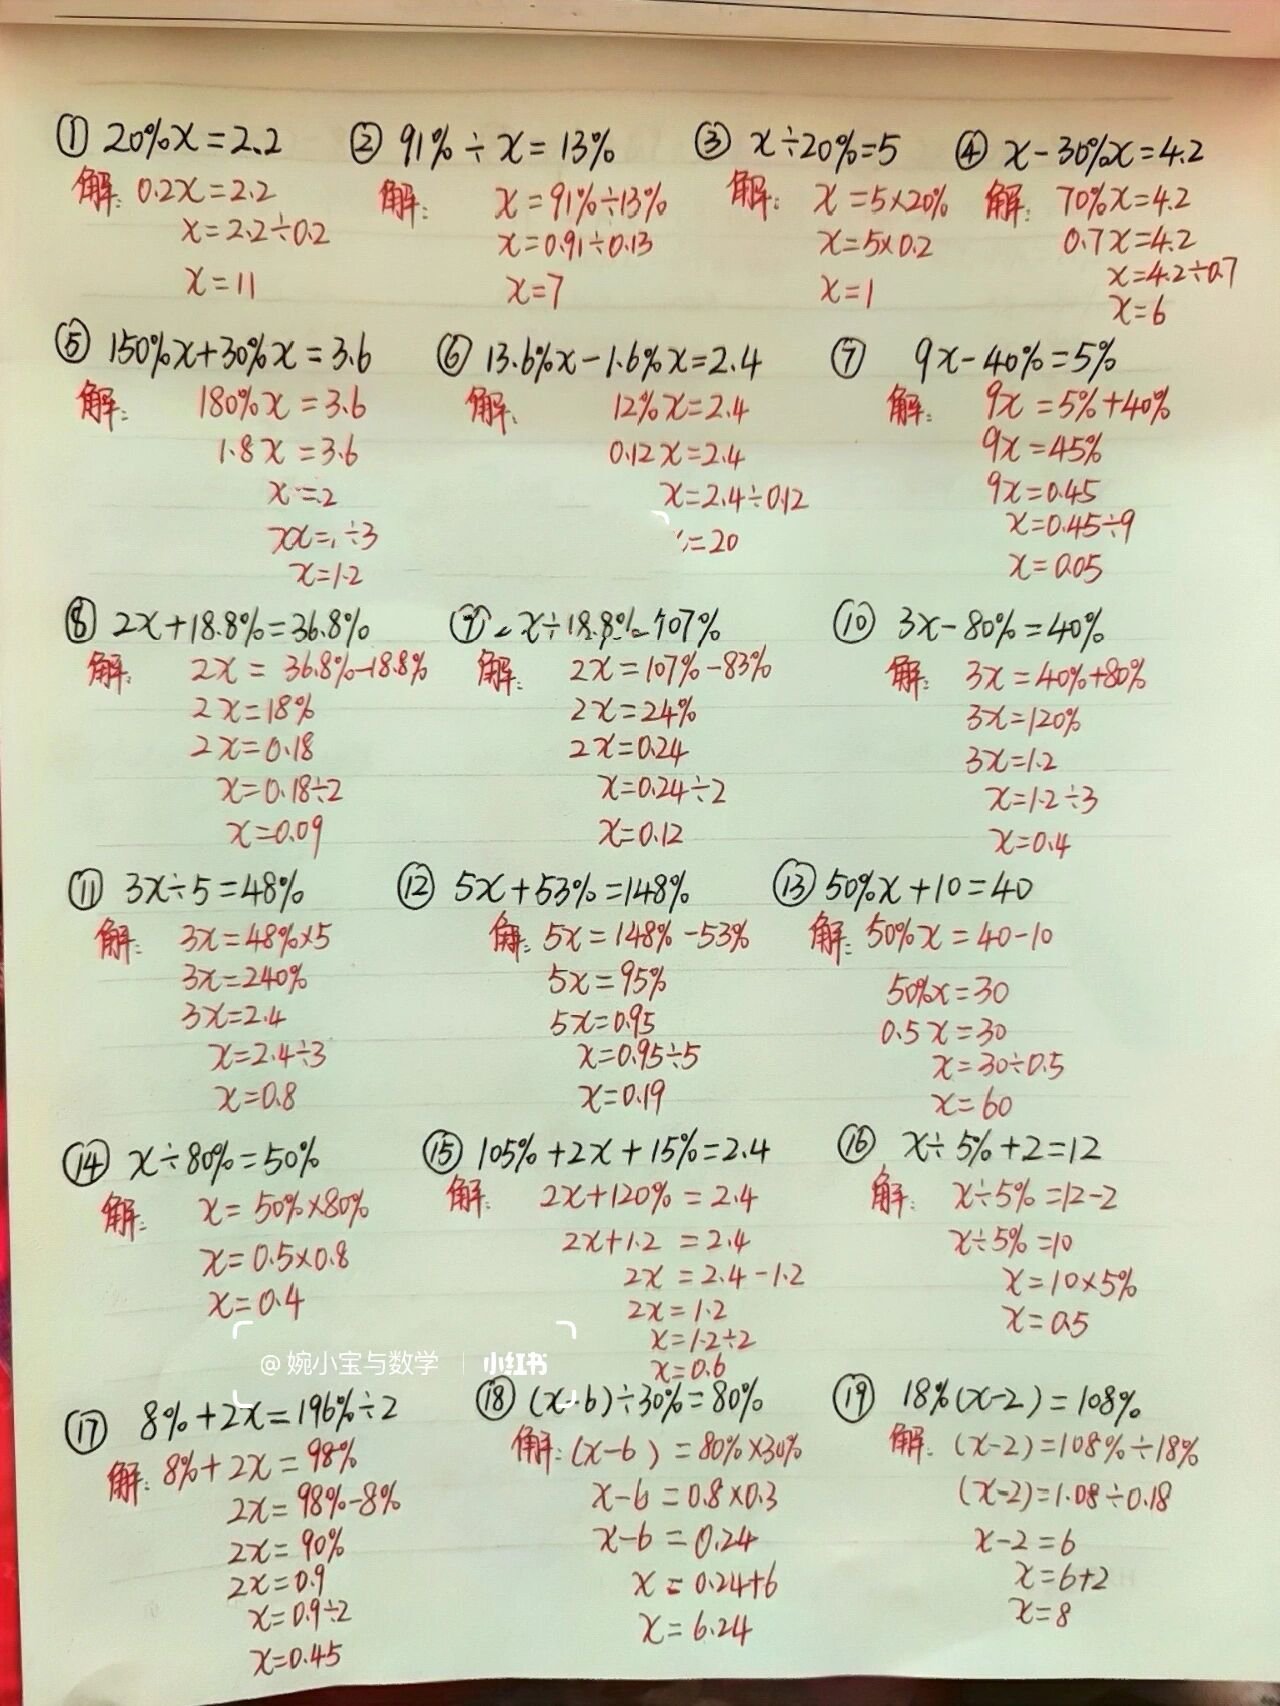 ① 20%x=2.2
解: 0.2x=2.2
x=2.2÷0.2
x=11
② 91%÷x=13%
解: x=91%÷13%
x=0.91÷0.13
x=7
③ x÷20%=5
解: x=5×20%
x=5×0.2
x=1
④ x-30%x=4.2
解: 70%x=4.2
0.7x=4.2
x=4.2÷0.7
x=6
⑤ 150%x+30%x=3.6
解: 180%x=3.6
1.8x=3.6
x=2
÷3
x=1.2
⑥ 13.6%x-1.6%x=2.4
解: 12%x=2.4
0.12x=2.4
x=2.4÷0.12
=20
⑦ 9x-40%=5%
解: 9x=5%+40%
9x=45%
9x=0.45
x=0.45÷9
x=0.05
⑧ 2x+18.8%=36.8%
解: 2x=36.8%-18.8%
2x=18%
2x=0.18
x=0.18÷2
x=0.09
x÷18.8% 107%
解: 2x=107%-83%
2x=24%
2x=0.24
x=0.24÷2
x=0.12
⑩ 3x-80%=40%
解: 3x=40%+80%
3x=120%
3x=1.2
x=1.2÷3
x=0.4
⑪ 3x÷5=48%
解: 3x=48%×5
3x=240%
3x=2.4
x=2.4÷3
x=0.8
⑫ 5x+53%=148%
解: 5x=148%-53%
5x=95%
5x=0.95
x=0.95÷5
x=0.19
⑬ 50%x+10=40
解: 50%x=40-10
50%x=30
0.5x=30
x=30÷0.5
x=60
⑭ x÷80%=50%
解: x=50%×80%
x=0.5×0.8
x=0.4
⑮ 105%+2x+15%=2.4
解: 2x+120%=2.4
2x+1.2=2.4
2x=2.4-1.2
2x=1.2
x=1.2÷2
x=0.6
⑯ x÷5%+2=12
解: x÷5%=12-2
x÷5%=10
x=10×5%
x=0.5
@婉小宝与数学 | 小红书
⑰ 8%+2x=196%÷2
解: 8%+2x=98%
2x=98%-8%
2x=90%
2x=0.9
x=0.9÷2
x=0.45
⑱ (x-6)÷30%=80%
解: (x-6)=80%×30%
x-6=0.8×0.3
x-6=0.24
x=0.24+6
x=6.24
⑲ 18%(x-2)=108%
解: (x-2)=108%÷18%
(x-2)=1.08÷0.18
x-2=6
x=6+2
x=8